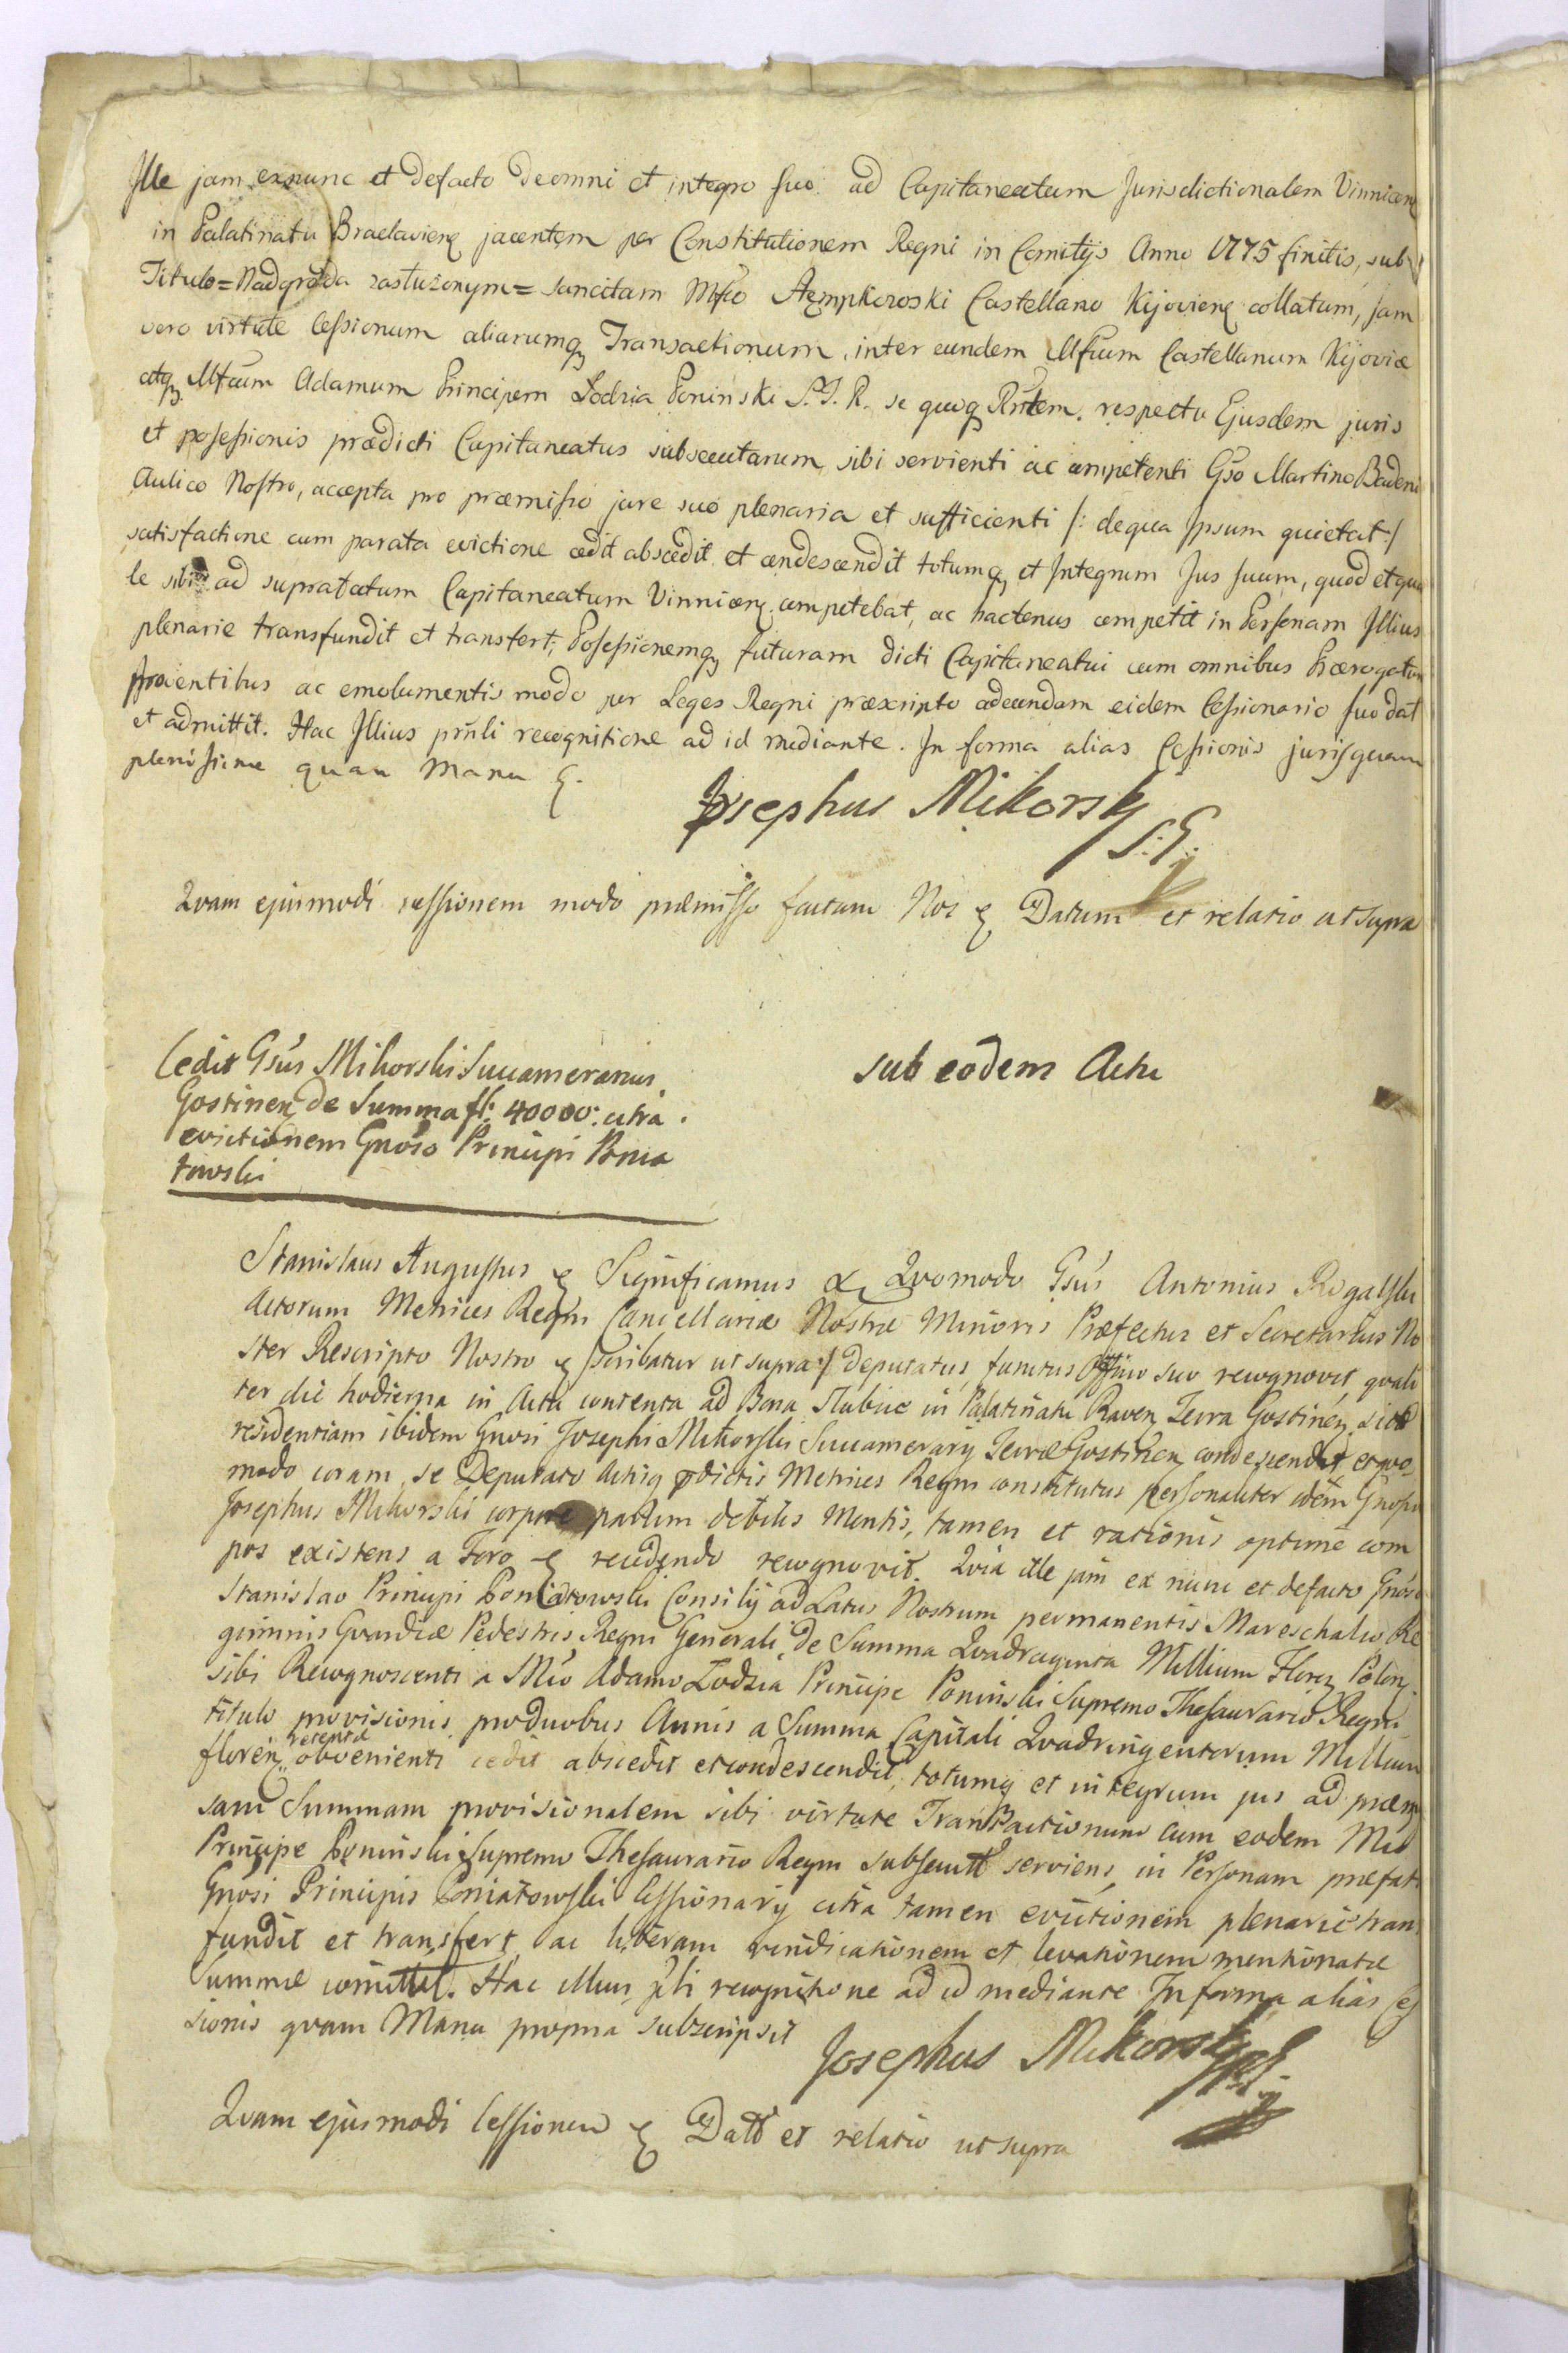 Ille jam exnunc et defacto de omni et integro suo ad Capitaneatum Jurisdictionalem Vinnicen
in Palatinatu Braclavien jacentem per Constitutionem Regni in Comitijs Anno 1775 finitis, sub
Titulo = Nadgroda zasłużonym = sancitam Mfco Stępkowski Castellano Kijovien collatum, jam
vero virtute Cessionum aliarumq Transactionum, inter eundem Mfcum Castellanum Kijoviæ
atq Mfcum Adamum Principem Lodzia Poninski S. J. R. se quoq Rntem. respectu Ejusdem juris
et possessionis prædicti Capitaneatus subsecutarum, sibi servienti ac competenti Gso Martino Badeni
Aulico Nostro, accepta pro præmisso jure suo plenaria et sufficienti /: de qua Ipsum quietat :/
satisfactione cum parata evictione cedit abscedit et condescendit totumq et Integrum Jus suum, quod et qua
le sibi ad supratactum Capitaneatum Vinnicen. competebat, ac hactenus competit in Personam Illius
plenarie transfundit et transfert, Possessionemq futuram dicti Capitaneatui cum omnibus Prærogatum
Proventibus ac emolumentis modo per Leges Regni præscripto adeundam eidem Cessionario suo dat
et admittit. Hac Illius prnli recognitione ad id mediante. In forma alias Cessionis juris quam
plenissime quam Manu
Josephus Mikorsky
S: G:
Quam ejusmodi cessionem modo præmisso factam Nos Datum et relatio ut supra
Cedit Gsus Mikorski Succamerarius
Gostinen de Summa fl: 40000: citra
evictionem Gnoso Principi Ponia
towski
sub eodem Actu
Stanislaus Augustus Significamus Quomodo Gsus Antonius Rogalski
Actorum Metrices Regni Cancellariæ Nostræ Minoris Præfectus et Secretarius No
ster Rescripto Nostro /scribatur ut supra:/ deputatus, functus Officio suo recognovit, quali
ter die hodierna in Actu contenta ad Bona Słubice in Palatinatu Raven Terra Gostinen sita
residentiam ibidem Gnosi Josephi Mikorski Succamerarij Terræ Gostinen condescendit et quo
modo coram se Deputato Actisq pdictis Metrices Regni constitutus personaliter idem Gnosus
Josephus Mikorski corpore partim debilis Mentis, tamen et rationis optime com
pos existens a Foro recedendo recognovit. Quia ille jam ex nunc et defacto Gnoso
Stanislao Principi Poniatowski Consilij ad Latus Nostrum permanentis Mareschalco Re
giminis Gvardiæ Pedestris Regni Generali, de Summa Quadraginta Millium Floren Polon
sibi Recognoscenti a Mfco Adamo Lodzia Principe Poninski Supremo Thesaurario Regni
titulo provisionis pro duobus Annis a Summa Capitali Quadringentorum Millium
floren retenta obvenienti cedit abscedit et condescendit, totumq et integrum jus ad præmis
sam Summam provisionalem sibi virtute Transactionum cum eodem Mfco
Principe Poninski Supremo Thesaurario Regni subsecut serviens, in Personam præfati
Gnosi Principis Poniatowski Cessionarij citra tamen evictionem plenarie trans
fundit et transfert, ac liberam vindicationem et levationem mentionatæ
Summæ comittit. Hac illius pnli recognitione ad id mediante In forma alias Ces
sionis quam Manu propria subscripsit
Josephus Mikorsky
Quam ejusmodi Cessionem Datt et relatio ut supra